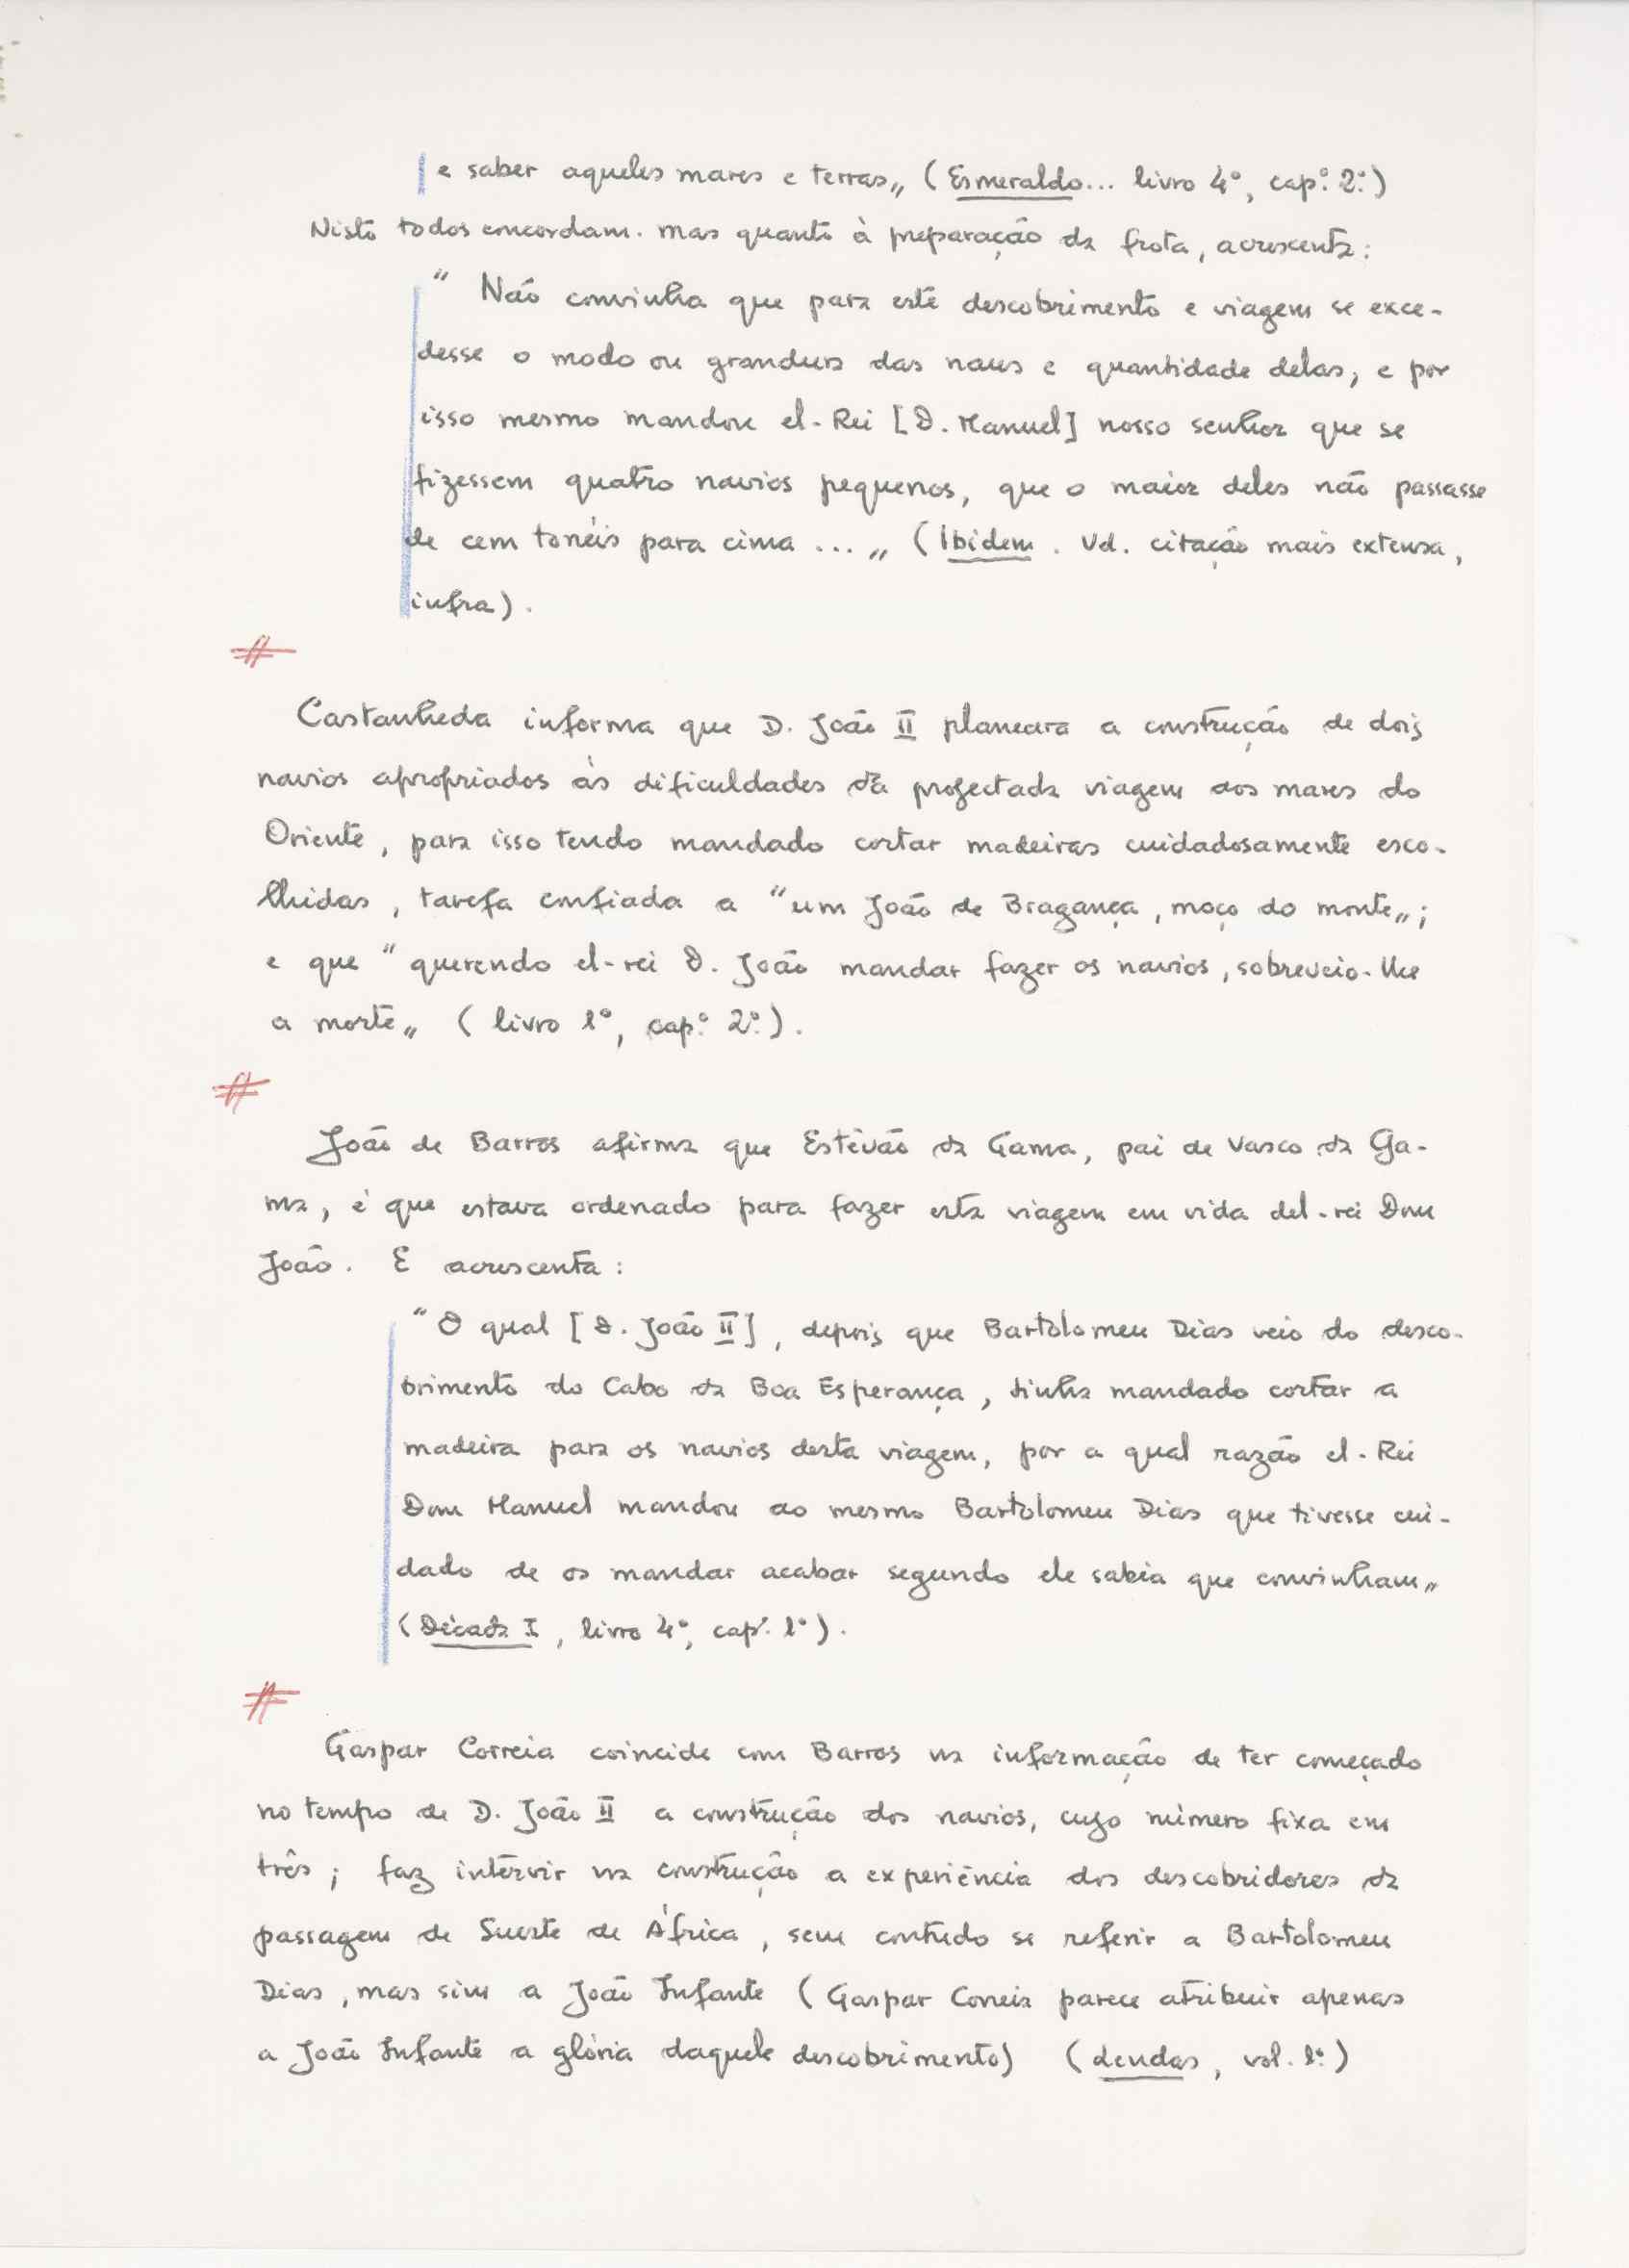 e saber aqueles mares e terras„ (Esmeraldo... livro 4º, cap.º 2.º)
Nisto todos concordam. mas quanto à preparação da frota, acrescenta:
“ Não convinha que para este descobrimento e viagem se exce-
desse o modo ou grandura das naus e quantidade delas, e por
isso mesmo mandou el-Rei [D. Manuel] nosso senhor que se
fizessem quatro navios pequenos, que o maior deles não passasse
de cem tonéis para cima ...„ (Ibidem. Vd. citação mais extensa,
infra).
Castanheda informa que D. João II planeara a construção de dois
navios apropriados às dificuldades da projectada viagem aos mares do
Oriente, para isso tendo mandado cortar madeiras cuidadosamente esco-
lhidas, tarefa confiada a “um João de Bragança, moço do monte„;
e que “querendo el-rei D. João mandar fazer os navios, sobreveio-lhe
a morte„ (livro 1º, cap.º 2.º).
João de Barros afirma que Estêvão da Gama, pai de Vasco da Ga-
ma, é que estava ordenado para fazer esta viagem em vida del-rei Dom
João. E acrescenta:
“O qual [D. João II], depois que Bartolomeu Dias veio do desco-
brimento do Cabo da Boa Esperança, tinha mandado cortar a
madeira para os navios desta viagem, por a qual razão el-Rei
Dom Manuel mandou ao mesmo Bartolomeu Dias que tivesse cui-
dado de os mandar acabar segundo ele sabia que convinham„
(Década I, livro 4º, cap.º 1º).
Gaspar Correia coincide com Barros na informação de ter começado
no tempo de D. João II a construção dos navios, cujo número fixa em
três; faz intervir na construção a experiência dos descobridores da
passagem de Sueste de África, sem contudo se referir a Bartolomeu
Dias, mas sim a João Infante (Gaspar Correia parece atribuir apenas
a João Infante a glória daquele descobrimento) (Lendas, vol. 1.º)